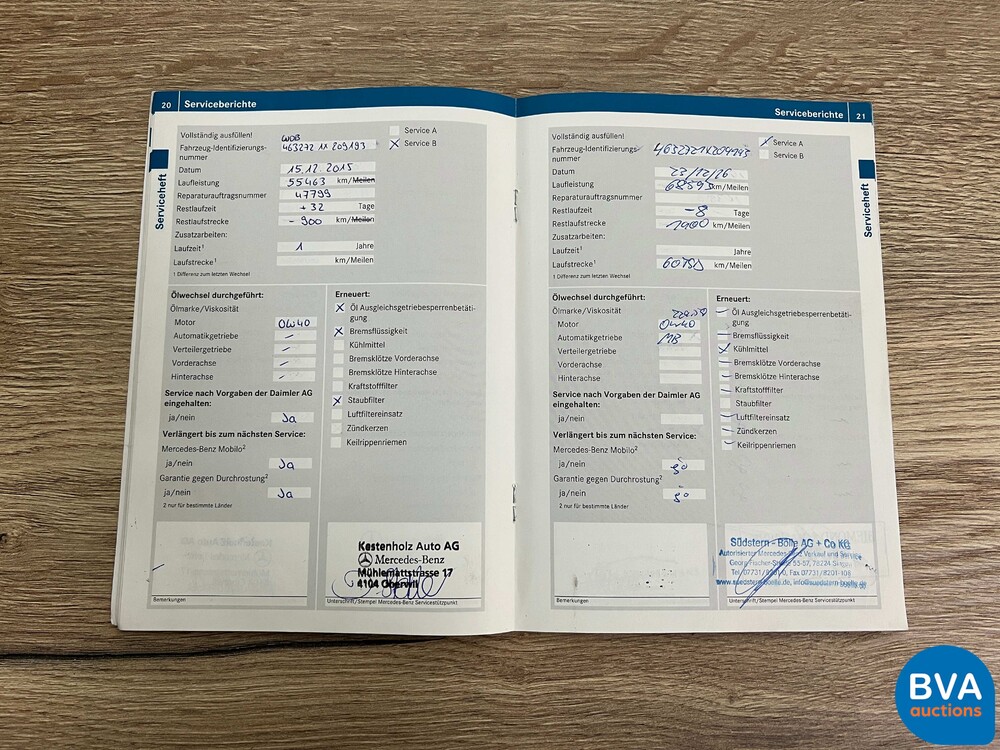 20 Serviceberichte
Serviceheft
Vollständig ausfüllen!
Service A
X Service B
Fahrzeug-Identifizierungs-
nummer
WDB
463272 1X 209193
Datum 15.12.2015
Laufleistung 55463 km/Meilen
Reparaturauftragsnummer 47799
Restlaufzeit + 32 Tage
Restlaufstrecke - 900 km/Meilen
Zusatzarbeiten:
Laufzeit¹ 1 Jahre
Laufstrecke¹ km/Meilen
1 Differenz zum letzten Wechsel
Ölwechsel durchgeführt:
Ölmarke/Viskosität
Motor 0W40
Automatikgetriebe -
Verteilergetriebe -
Vorderachse -
Hinterachse -
Service nach Vorgaben der Daimler AG
eingehalten:
ja/nein Ja
Verlängert bis zum nächsten Service:
Mercedes-Benz Mobilo²
ja/nein Ja
Garantie gegen Durchrostung²
ja/nein Ja
2 nur für bestimmte Länder
Erneuert:
X Öl Ausgleichsgetriebesperrenbetäti-
gung
X Bremsflüssigkeit
Kühlmittel
Bremsklötze Vorderachse
Bremsklötze Hinterachse
Kraftstofffilter
X Staubfilter
Luftfiltereinsatz
Zündkerzen
Keilrippenriemen
Bemerkungen
Kestenholz Auto AG
Mercedes-Benz
Mühlemattstrasse 17
4104 Oberwil
Unterschrift/Stempel Mercedes-Benz Servicestützpunkt
Serviceberichte 21
Serviceheft
Vollständig ausfüllen!
Service A
Service B
Fahrzeug-Identifizierungs-
nummer 4632721X209193
Datum 23/12/16
Laufleistung km/Meilen
Reparaturauftragsnummer
Restlaufzeit -8 Tage
Restlaufstrecke 1900 km/Meilen
Zusatzarbeiten:
Laufzeit¹ Jahre
Laufstrecke¹ km/Meilen
1 Differenz zum letzten Wechsel
Ölwechsel durchgeführt:
Ölmarke/Viskosität
Motor 0W40
Automatikgetriebe MB
Verteilergetriebe
Vorderachse
Hinterachse
Service nach Vorgaben der Daimler AG
eingehalten:
ja/nein
Verlängert bis zum nächsten Service:
Mercedes-Benz Mobilo²
ja/nein
Garantie gegen Durchrostung²
ja/nein
2 nur für bestimmte Länder
Erneuert:
Öl Ausgleichsgetriebesperrenbetäti-
gung
Bremsflüssigkeit
Kühlmittel
Bremsklötze Vorderachse
Bremsklötze Hinterachse
Kraftstofffilter
Staubfilter
Luftfiltereinsatz
Zündkerzen
Keilrippenriemen
Bemerkungen
Südstern - Bölle AG + Co KG
Autorisierter Mercedes-Benz Verkauf und Service
Georg-Fischer-Straße 55-57, 78224 Singen
Tel. 07731/8201-0, Fax 07731/8201-108
www.suedstern-boelle.de, info@suedstern-boelle.de
Unterschrift/Stempel Mercedes-Benz Servicestützpunkt
BVA
auctions